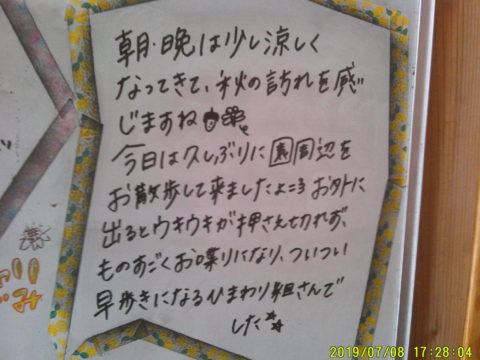 朝・晩は少し涼しく
なってきて、秋の訪れを感
じますね
今日は久しぶりに園周辺を
お散歩して来ましたよ=3 お外に
出るとウキウキが押さえ切れず、
ものすごくお喋りになり、ついつい
早歩きになるひまわり組さんで
した☆☆
2019/07/08 17:28:04